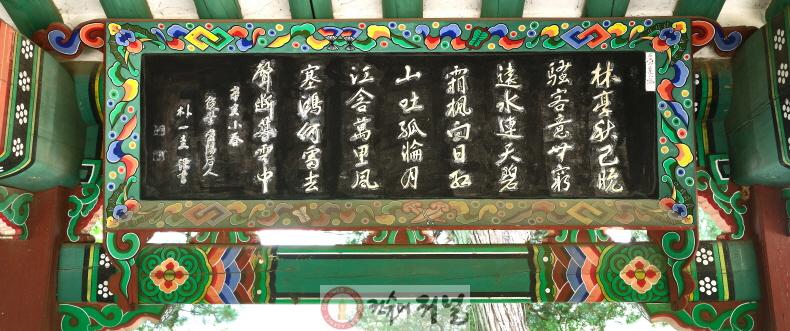 林亭秋已晚
騷客意無窮
遠水連天碧
霜楓向日紅
山吐孤輪月
江含萬里風
塞鴻何處去
聲斷暮雲中
辛亥小春
朴一圭 謹書